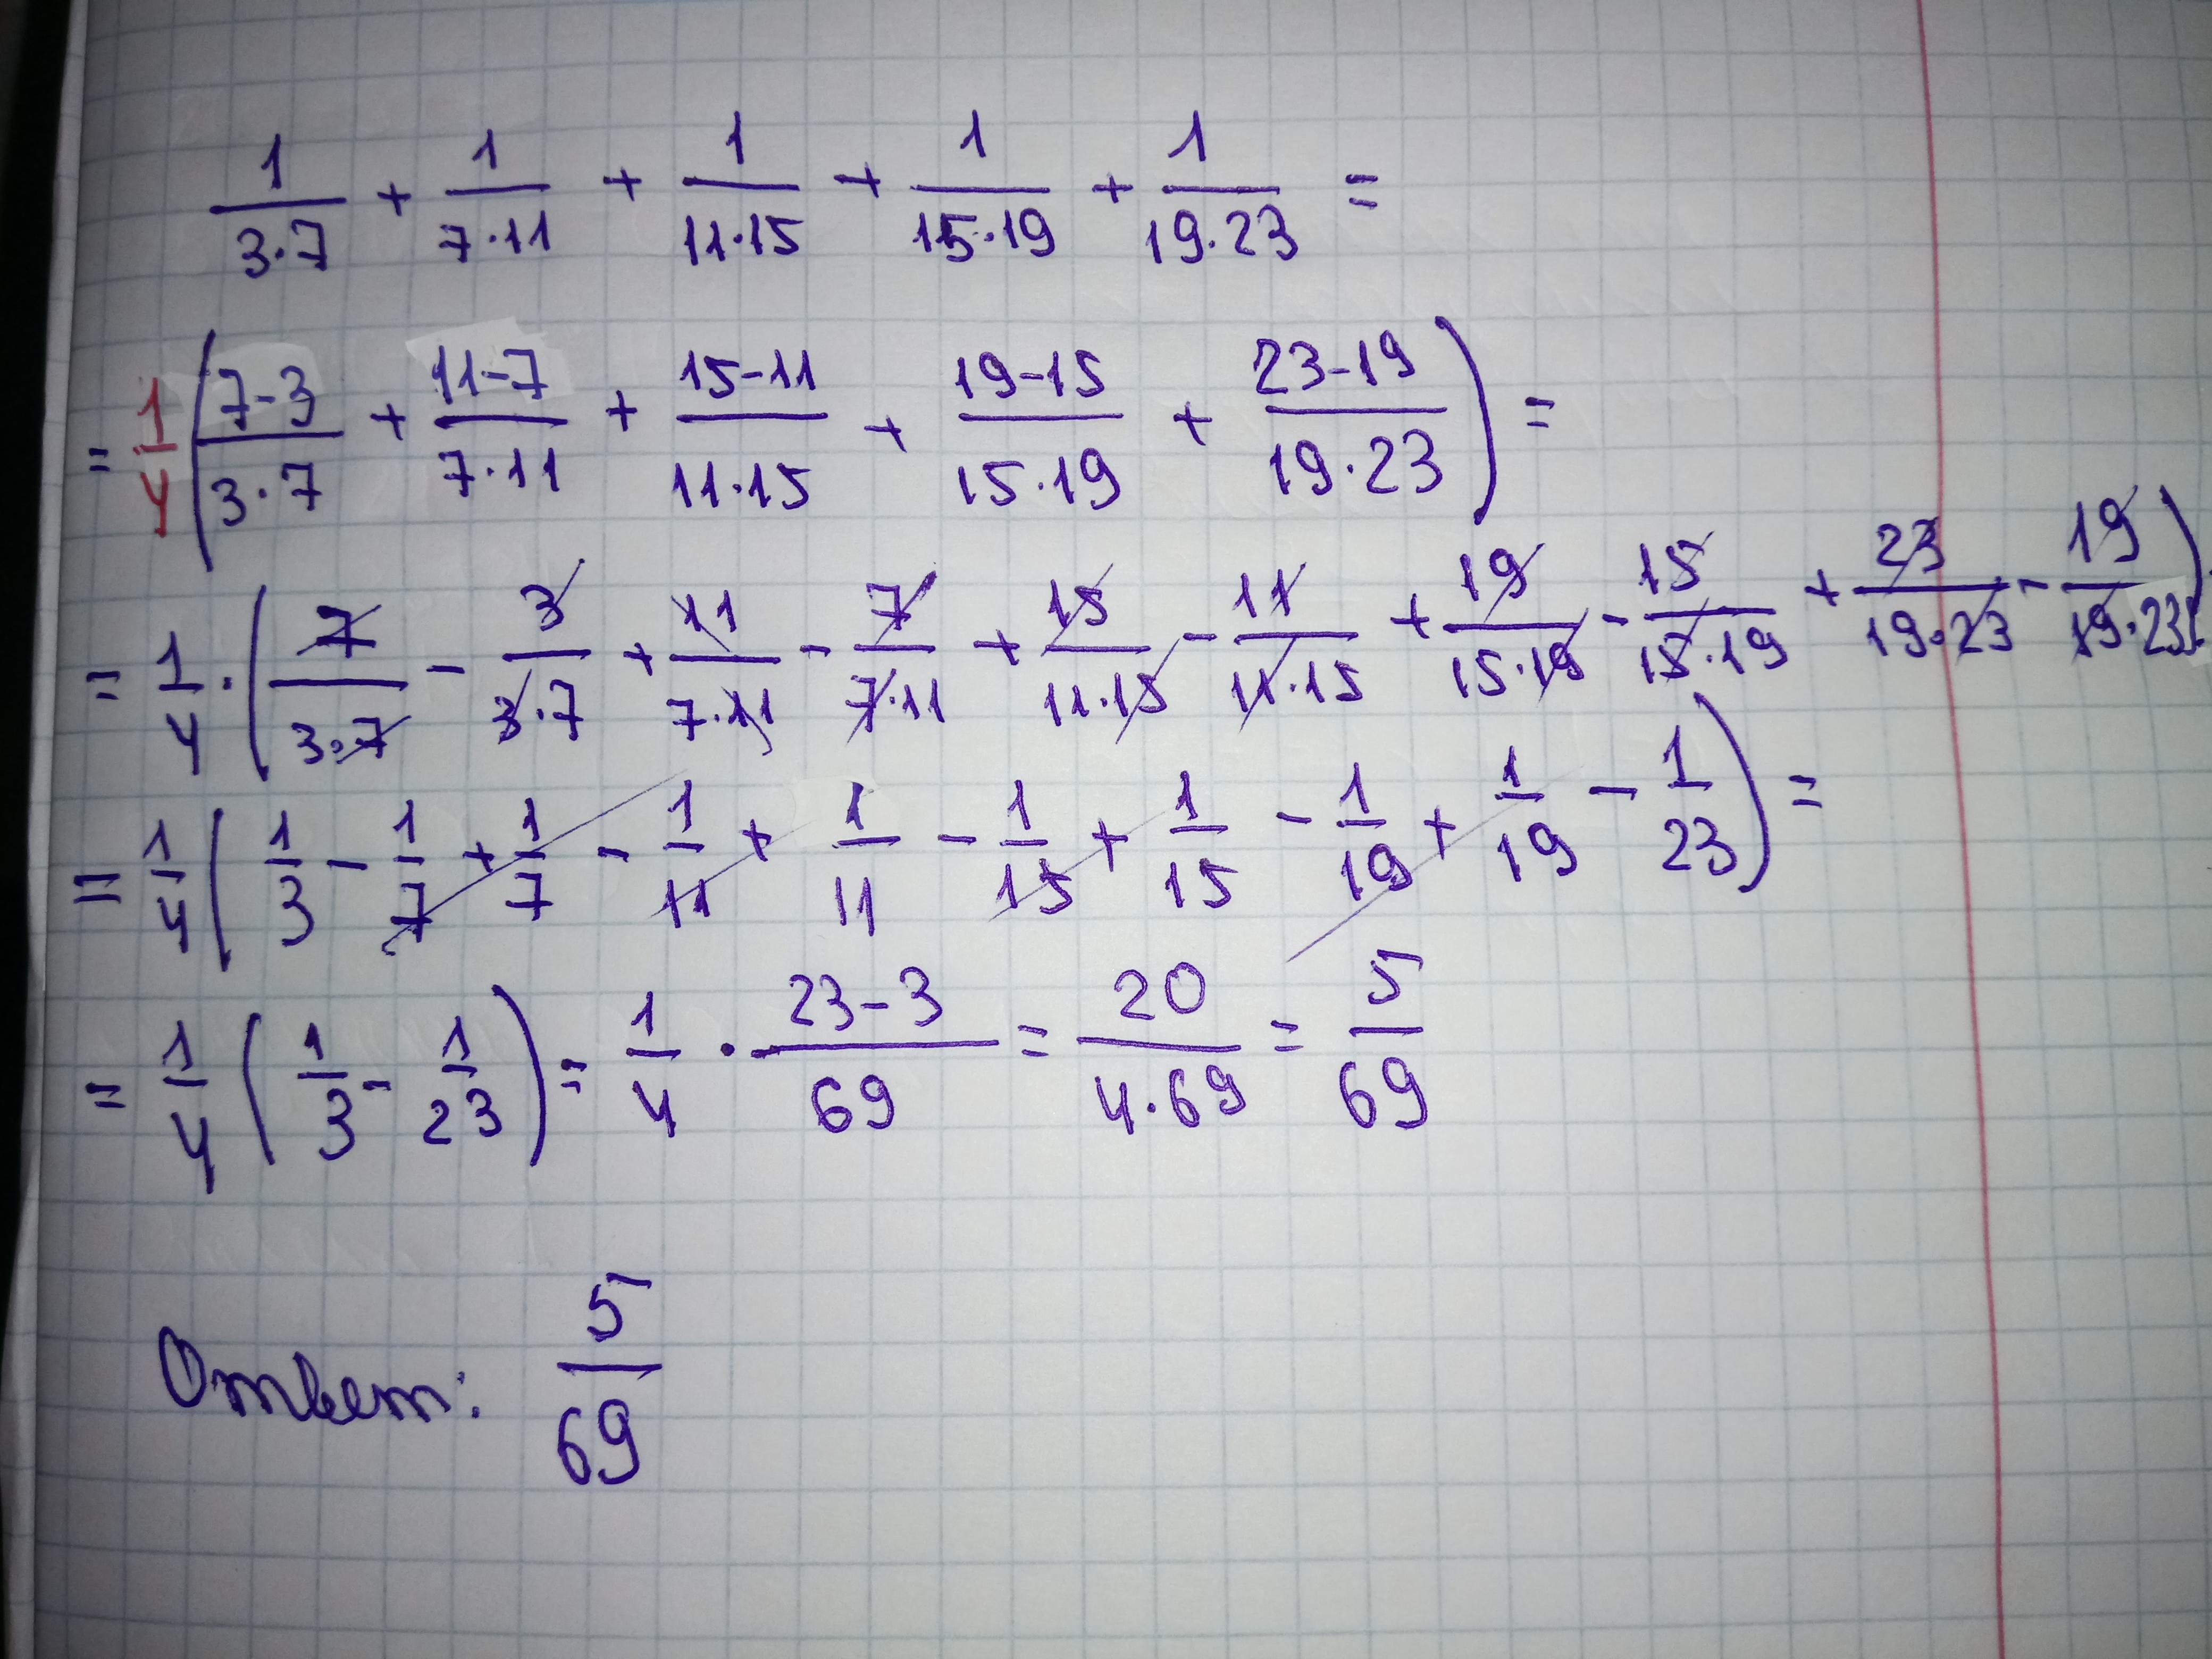 1/(3·7) + 1/(7·11) + 1/(11·15) + 1/(15·19) + 1/(19·23) =
= 1/4 ((7-3)/(3·7) + (11-7)/(7·11) + (15-11)/(11·15) + (19-15)/(15·19) + (23-19)/(19·23)) =
= 1/4 · (7/(3·7) - 3/(3·7) + 11/(7·11) - 7/(7·11) + 15/(11·15) - 11/(11·15) + 19/(15·19) - 15/(15·19) + 23/(19·23) - 19/(19·23))
= 1/4 (1/3 - 1/7 + 1/7 - 1/11 + 1/11 - 1/15 + 1/15 - 1/19 + 1/19 - 1/23) =
= 1/4 (1/3 - 1/23) = 1/4 · (23-3)/69 = 20/(4·69) = 5/69
Ответ: 5/69